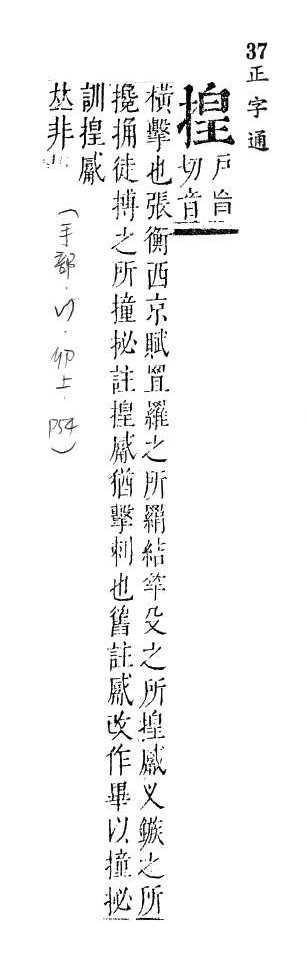 37正字通
揘
戶盲
切音
橫擊也張衡西京賦罝羅之所羂結竿殳之所揘又鏃之所
攙捅徒搏之所撞㧙註揘猶擊刺也舊註改作畢以撞㧙
訓揘
𠀤非
(手部.卯上.P54)